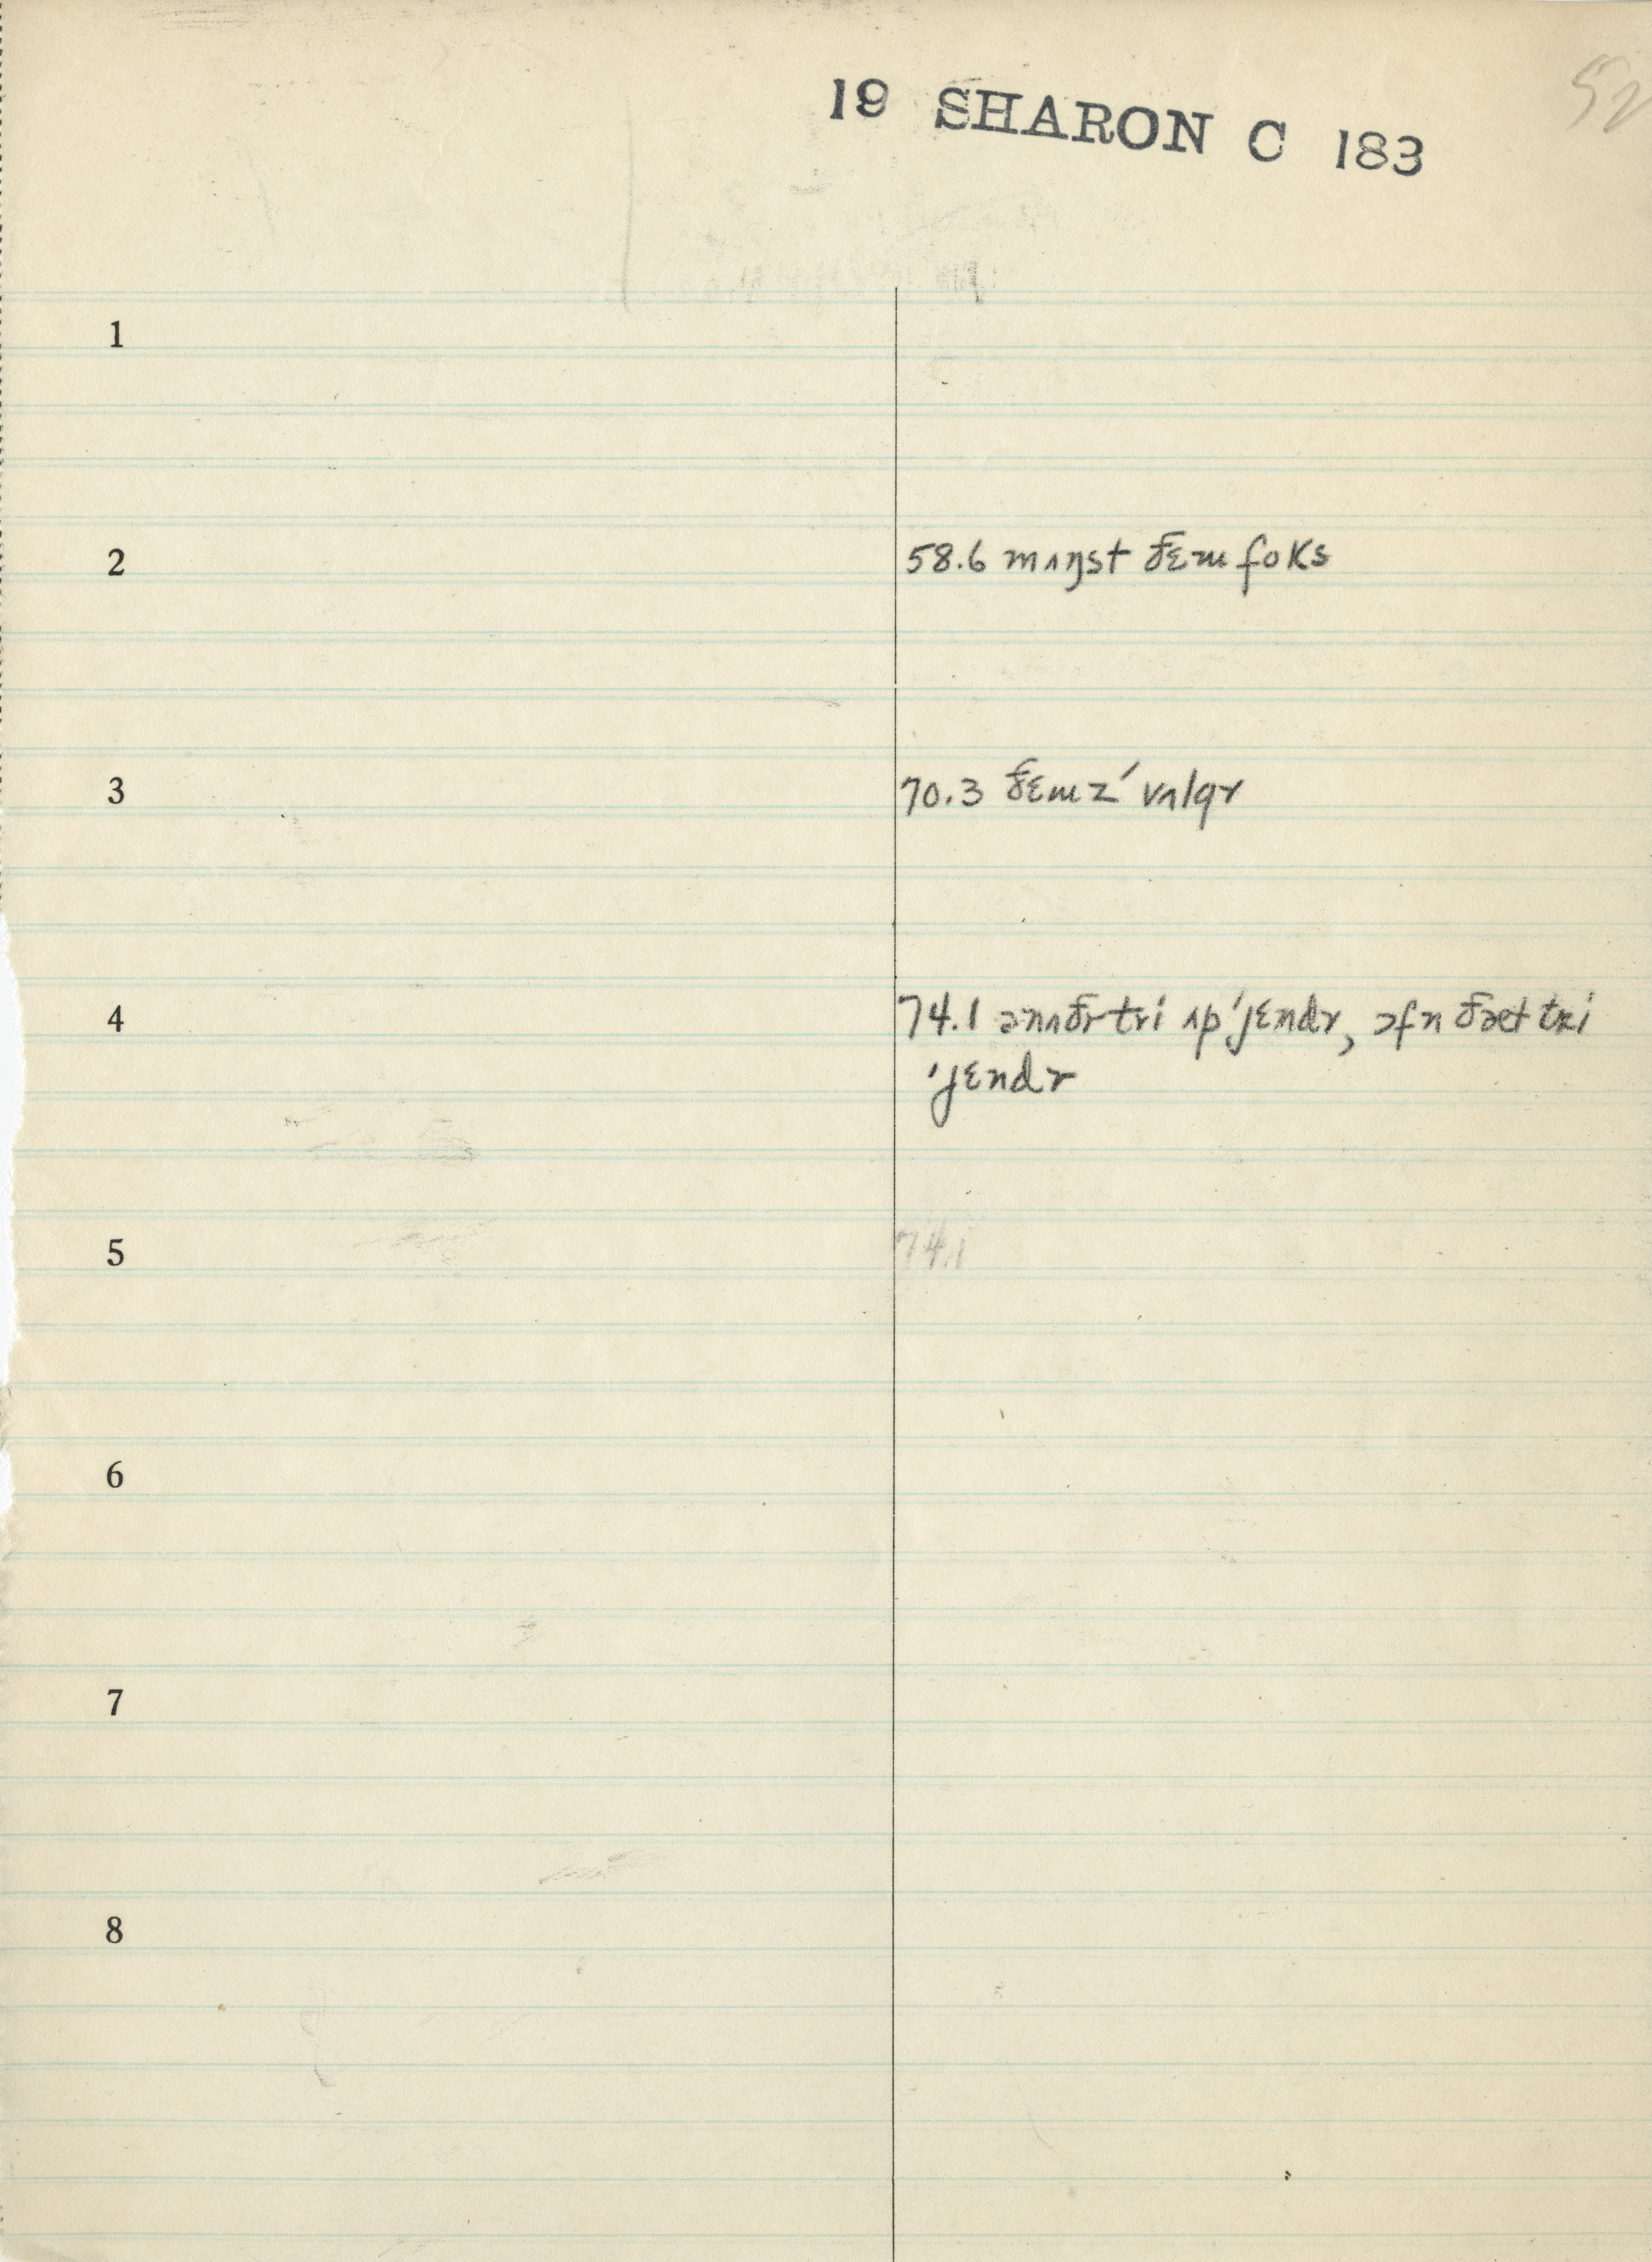 19 SHARON C 183
52
1
2 58.6 mʌŋst ðɛm foks
3 70.3 ðɛmz ́ vʌlgr
4 74.1 ənʌðr tri ʌp ˈjɛndr, ɔfn ðæt tri
ˈjɛndr
5 74.1
6
7
8